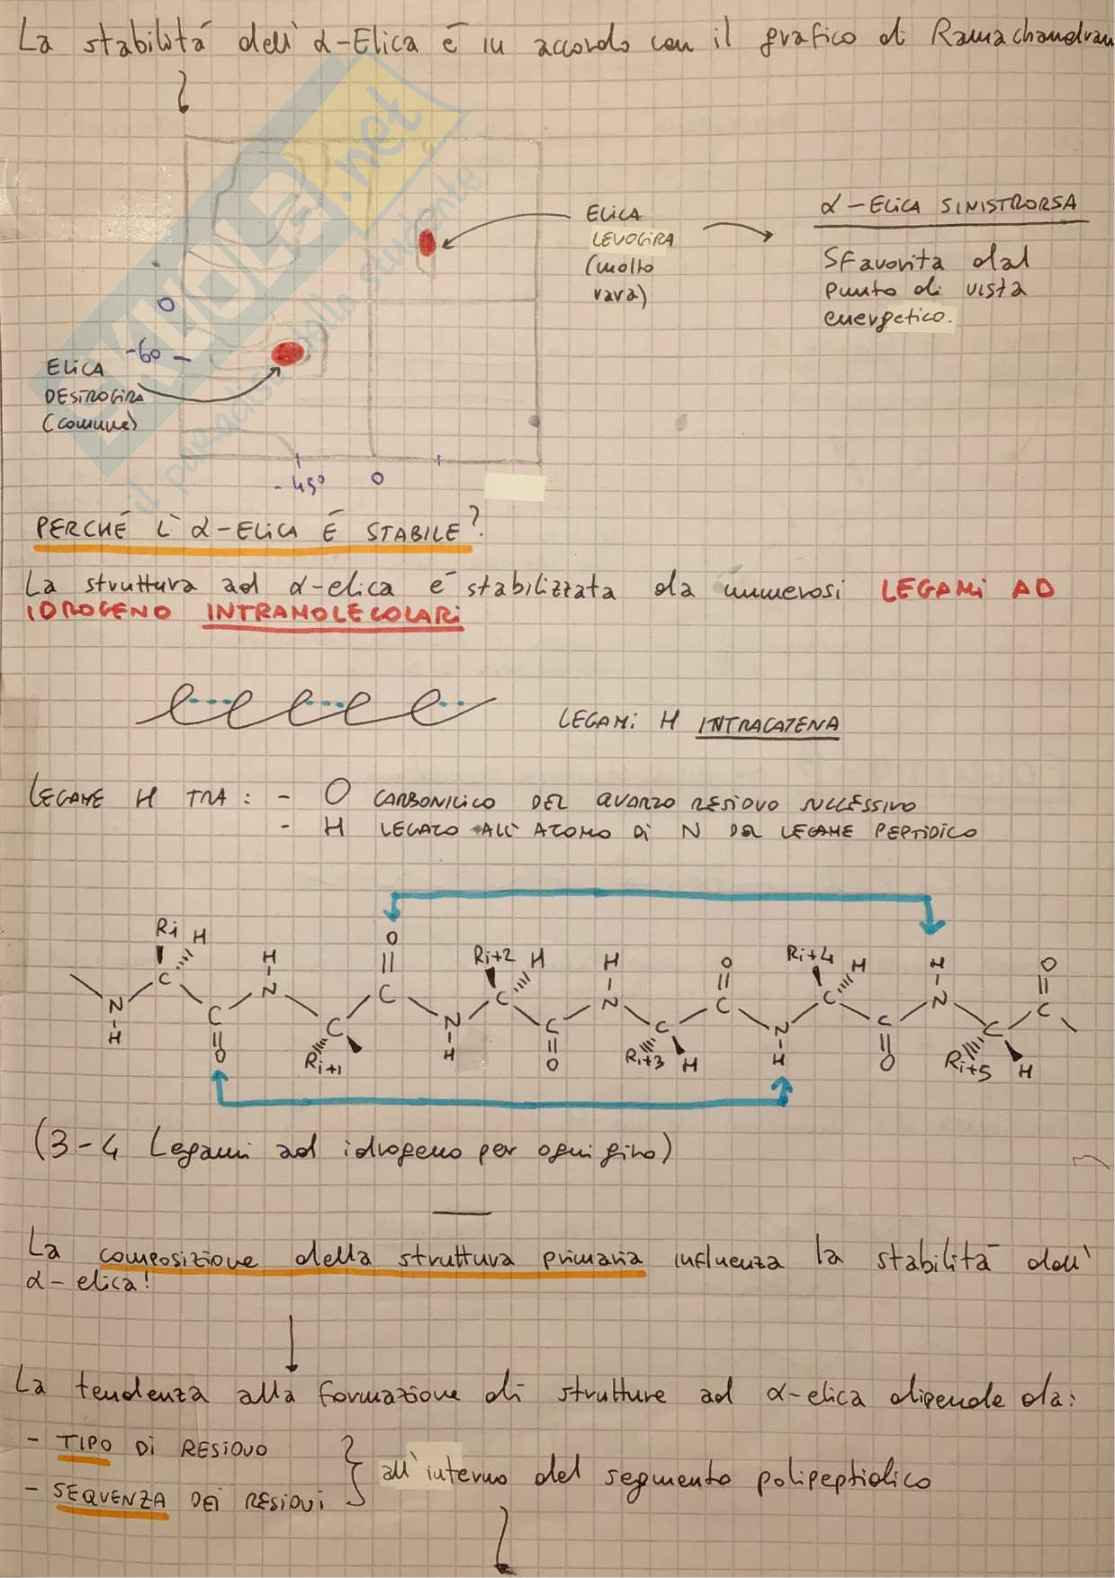 La stabilitá dell' α-Elica é in accordo con il grafico di Ramachandran
ELICA
LEVOGIRA
(molto
rara)
α-ELICA SINISTRORSA
Sfavorita dal
punto di vista
energetico.
0
-60
ELICA
DESTROGIRA
(comune)
-45°
0
PERCHÉ L'α-ELICA É STABILE?
La struttura ad α-elica é stabilizzata da numerosi LEGAMI AD
IDROGENO INTRAMOLECOLARI
LEGAMI H INTRACATENA
LEGAME H TRA: - O CARBONILICO DEL QUARTO RESIDUO SUCCESSIVO
- H LEGATO ALL' ATOMO DI N DEL LEGAME PEPTIDICO
Ri H
H
N
C
O
Ri+1
Ri+2 H
Ri+3 H
Ri+4 H
Ri+5 H
(3-4 Legami ad idrogeno per ogni giro)
La composizione della struttura primaria influenza la stabilitá dell'
α-elica!
La tendenza alla formazione di strutture ad α-elica dipende da:
- TIPO DI RESIDUO
- SEQUENZA DEI RESIDUI
all'interno del segmento polipeptidico
SKUOLA.net
il paradiso dello studente